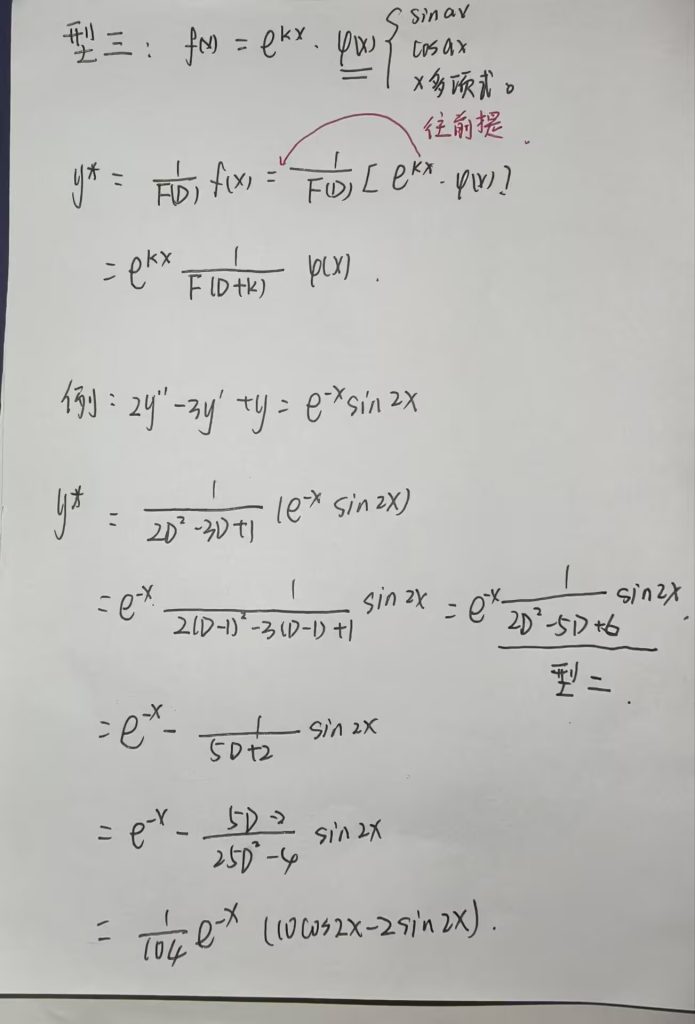 型三: f(x) = e^{kx} · φ(x) { sin ax
cos ax
x多项式。
往前提.
y* = \frac{1}{F(D)} f(x) = \frac{1}{F(D)} [ e^{kx} · φ(x) ]
= e^{kx} \frac{1}{F(D+k)} φ(x) .
例: 2y'' - 3y' + y = e^{-x} sin 2x
y* = \frac{1}{2D^2 - 3D + 1} (e^{-x} sin 2x)
= e^{-x} \frac{1}{2(D-1)^2 - 3(D-1) + 1} sin 2x = e^{-x} \frac{1}{2D^2 - 5D + 6} sin 2x.
型二.
= e^{-x} - \frac{1}{5D+2} sin 2x
= e^{-x} - \frac{5D-2}{25D^2 - 4} sin 2x
= \frac{1}{104} e^{-x} (10cos2x - 2sin2x).